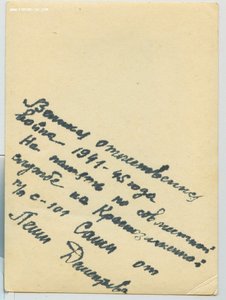 Великая отечественная
война 1941-45 года
На память по совместной
службе на Краснознаменной
п/л С-101 Саши от
Лени Дмитриева